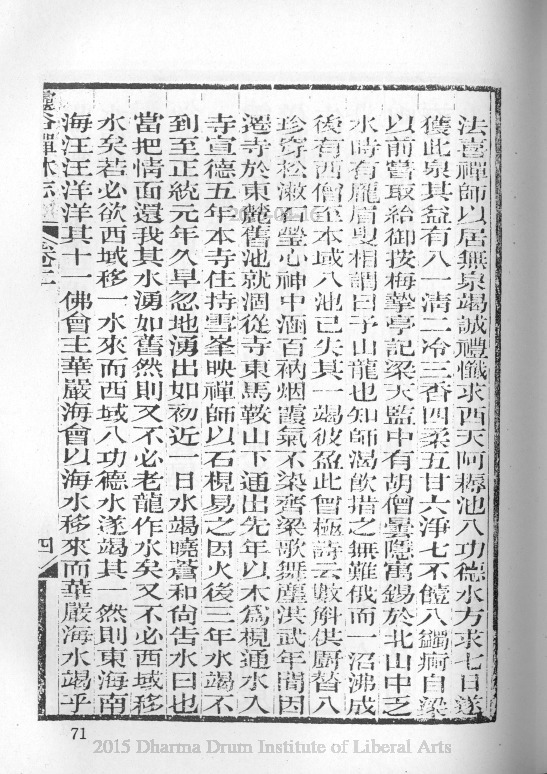 法喜禪師以居無泉竭誠禮懺求西天阿耨池八功德水方求七日遂
獲此泉其益有八一清二冷三香四柔五甘六淨七不饐八蠲痾自梁
以前嘗取給御按梅摯亭記梁天監中有胡僧曇隱寓錫於北山中乏
水時有龐眉叟相謂曰予山龍也知師渴飲措之無難俄而一沼沸成
後有西僧至本域八池已失其一竭彼盈此曾極詩云數斛供廚替八
珍穿松漱石瑩心神中涵百衲烟霞氣不染齊梁歌舞塵洪武年間因
遷寺於東麓舊池就涸從寺東馬鞍山下通出先年以木為梘通水入
寺宣德五年本寺住持雪峯映禪師以石梘易之因火後三年水竭不
到至正統元年久旱忽地湧出如初近一日水竭曉蒼和尚告水曰也
當把情面還我其水湧如舊然則又不必老龍作水矣又不必西域移
水矣若必欲西域移一水來而西域八功德水遂竭其一然則東海南
海汪汪洋洋其十一佛會主華嚴海會以海水移來而華嚴海水竭乎
靈谷禪林志
卷二
四
71
2015 Dharma Drum Institute of Liberal Arts